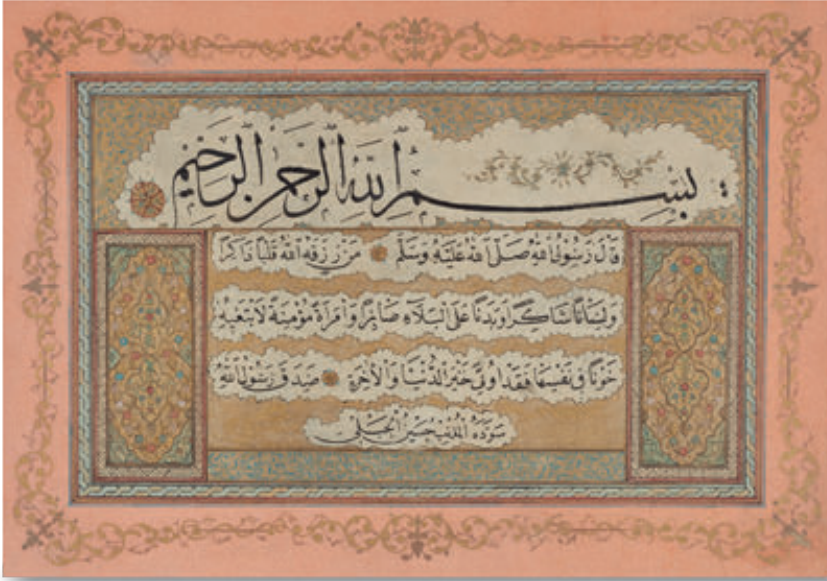 بِسْمِ اللهِ الرَّحْمٰنِ الرَّحِيمِ
قَالَ رَسُولُ اللهِ صَلَّى اللهُ عَلَيْهِ وَسَلَّمَ مَنْ رَزَقَهُ اللهُ قَلْبًا ذَاكِرًا
وَلِسَانًا شَاكِرًا وَبَدَنًا عَلَى الْبَلَاءِ صَابِرًا وَامْرَأَةً مُؤْمِنَةً لَا تَبْغِيهِ
خَوْنًا فِي نَفْسِهَا فَقَدْ اُوتِيَ خَيْرَ الدُّنْيَا وَالْاٰخِرَةِ صَدَقَ رَسُولُ اللهِ
سَوَّدَهُ الْمُذْنِبُ حُسَيْنُ